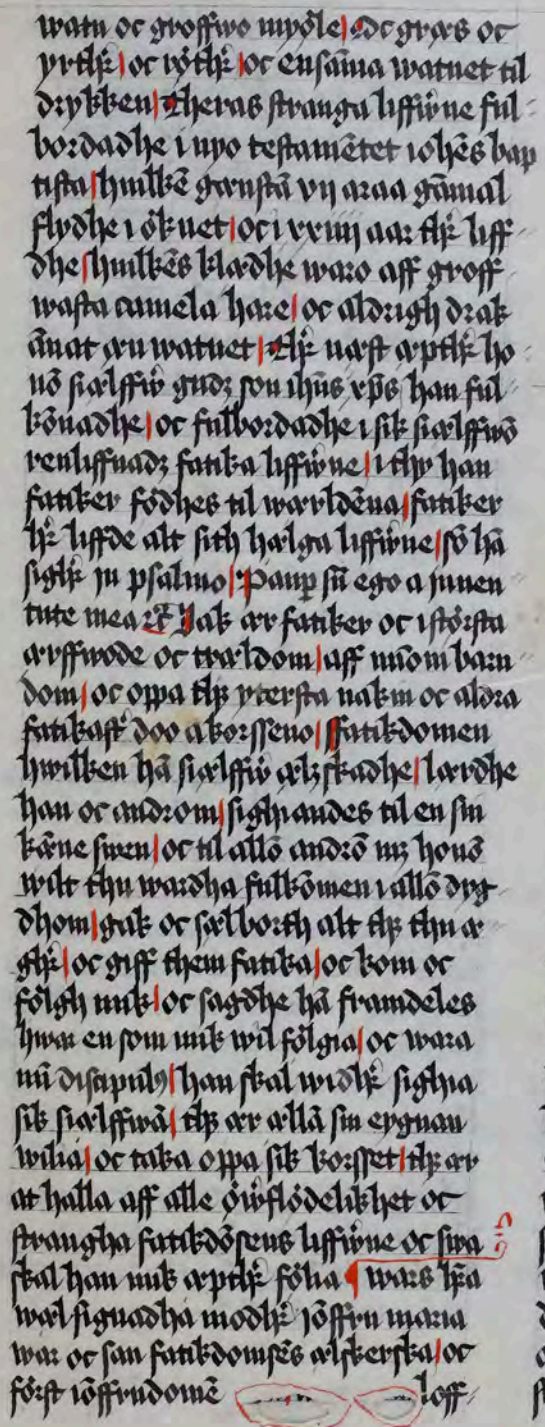 watn oc groffwo myöle | Oc græs oc
yrthr̄ | oc röthr̄ | oc ensāma watnet til
drykken | Theras stranga liffwͥne ful
bordadhe i nyo testamētet iohēs bap
tista | huilkē gænstā vij araa gāmal
flydhe i öknet | oc i xxiiij aar thr̄ liff
dhe | huilkēs klædhe waro aff groff
wasta camela hare | oc aldrigh drak
ānat æn watnet | Thr̄ næst æpthr̄ ho
nō siælffwͥ gudz son ihūs xp̄s han ful
kōnadhe | oc fulbordadhe i sik siælffwō
renliffnadz fatika liffwͥne | i thy han
fatiker födhes til wærldēna | fatiker
hr̄ liffde alt sith hælga liffwͥne | sō hā
sighr̄ in psalmo | Paup̱ sū ego a juuen
tute mea ⁊c̄ Jak ær fatiker oc i största
ærffwode oc trældom | aff mīnom barn
dom | oc oppa thꝫ ytersta nakin oc aldra
fatikast̄ döö a korsseno | Fatikdomen
hwilken hā siælffwͥ ælskadhe | lærdhe
han oc androm | sighiandes til en sin
kǣne swen | oc til allō andrō mꝫ honō
wilt thu wardha fulkōmen i allō dyg
dhom | gak oc sælborth alt thꝫ thu æ
ghr̄ | oc giff them fatika | oc kom oc
fölgh mik | oc sagdhe hā framdeles
hwar en som mik wil fölgia | oc wara
mī discipulꝰ | han skal widhr̄ sighia
sik siælffwā | thꝫ ær ællā sin eygnan
wilia | oc taka oppa sik korsset | thꝫ ær
at halla aff alle öwͥflödelikhet oc
strangha fatikdōsens liffwͥne oc swa
skal han mik æpthr̄ fölia ¶ wars hr̄a
wælsignadha modhr̄ jōffru maria
war oc san fatikdomsēs ælskerska | oc
först iōffrudomē loff